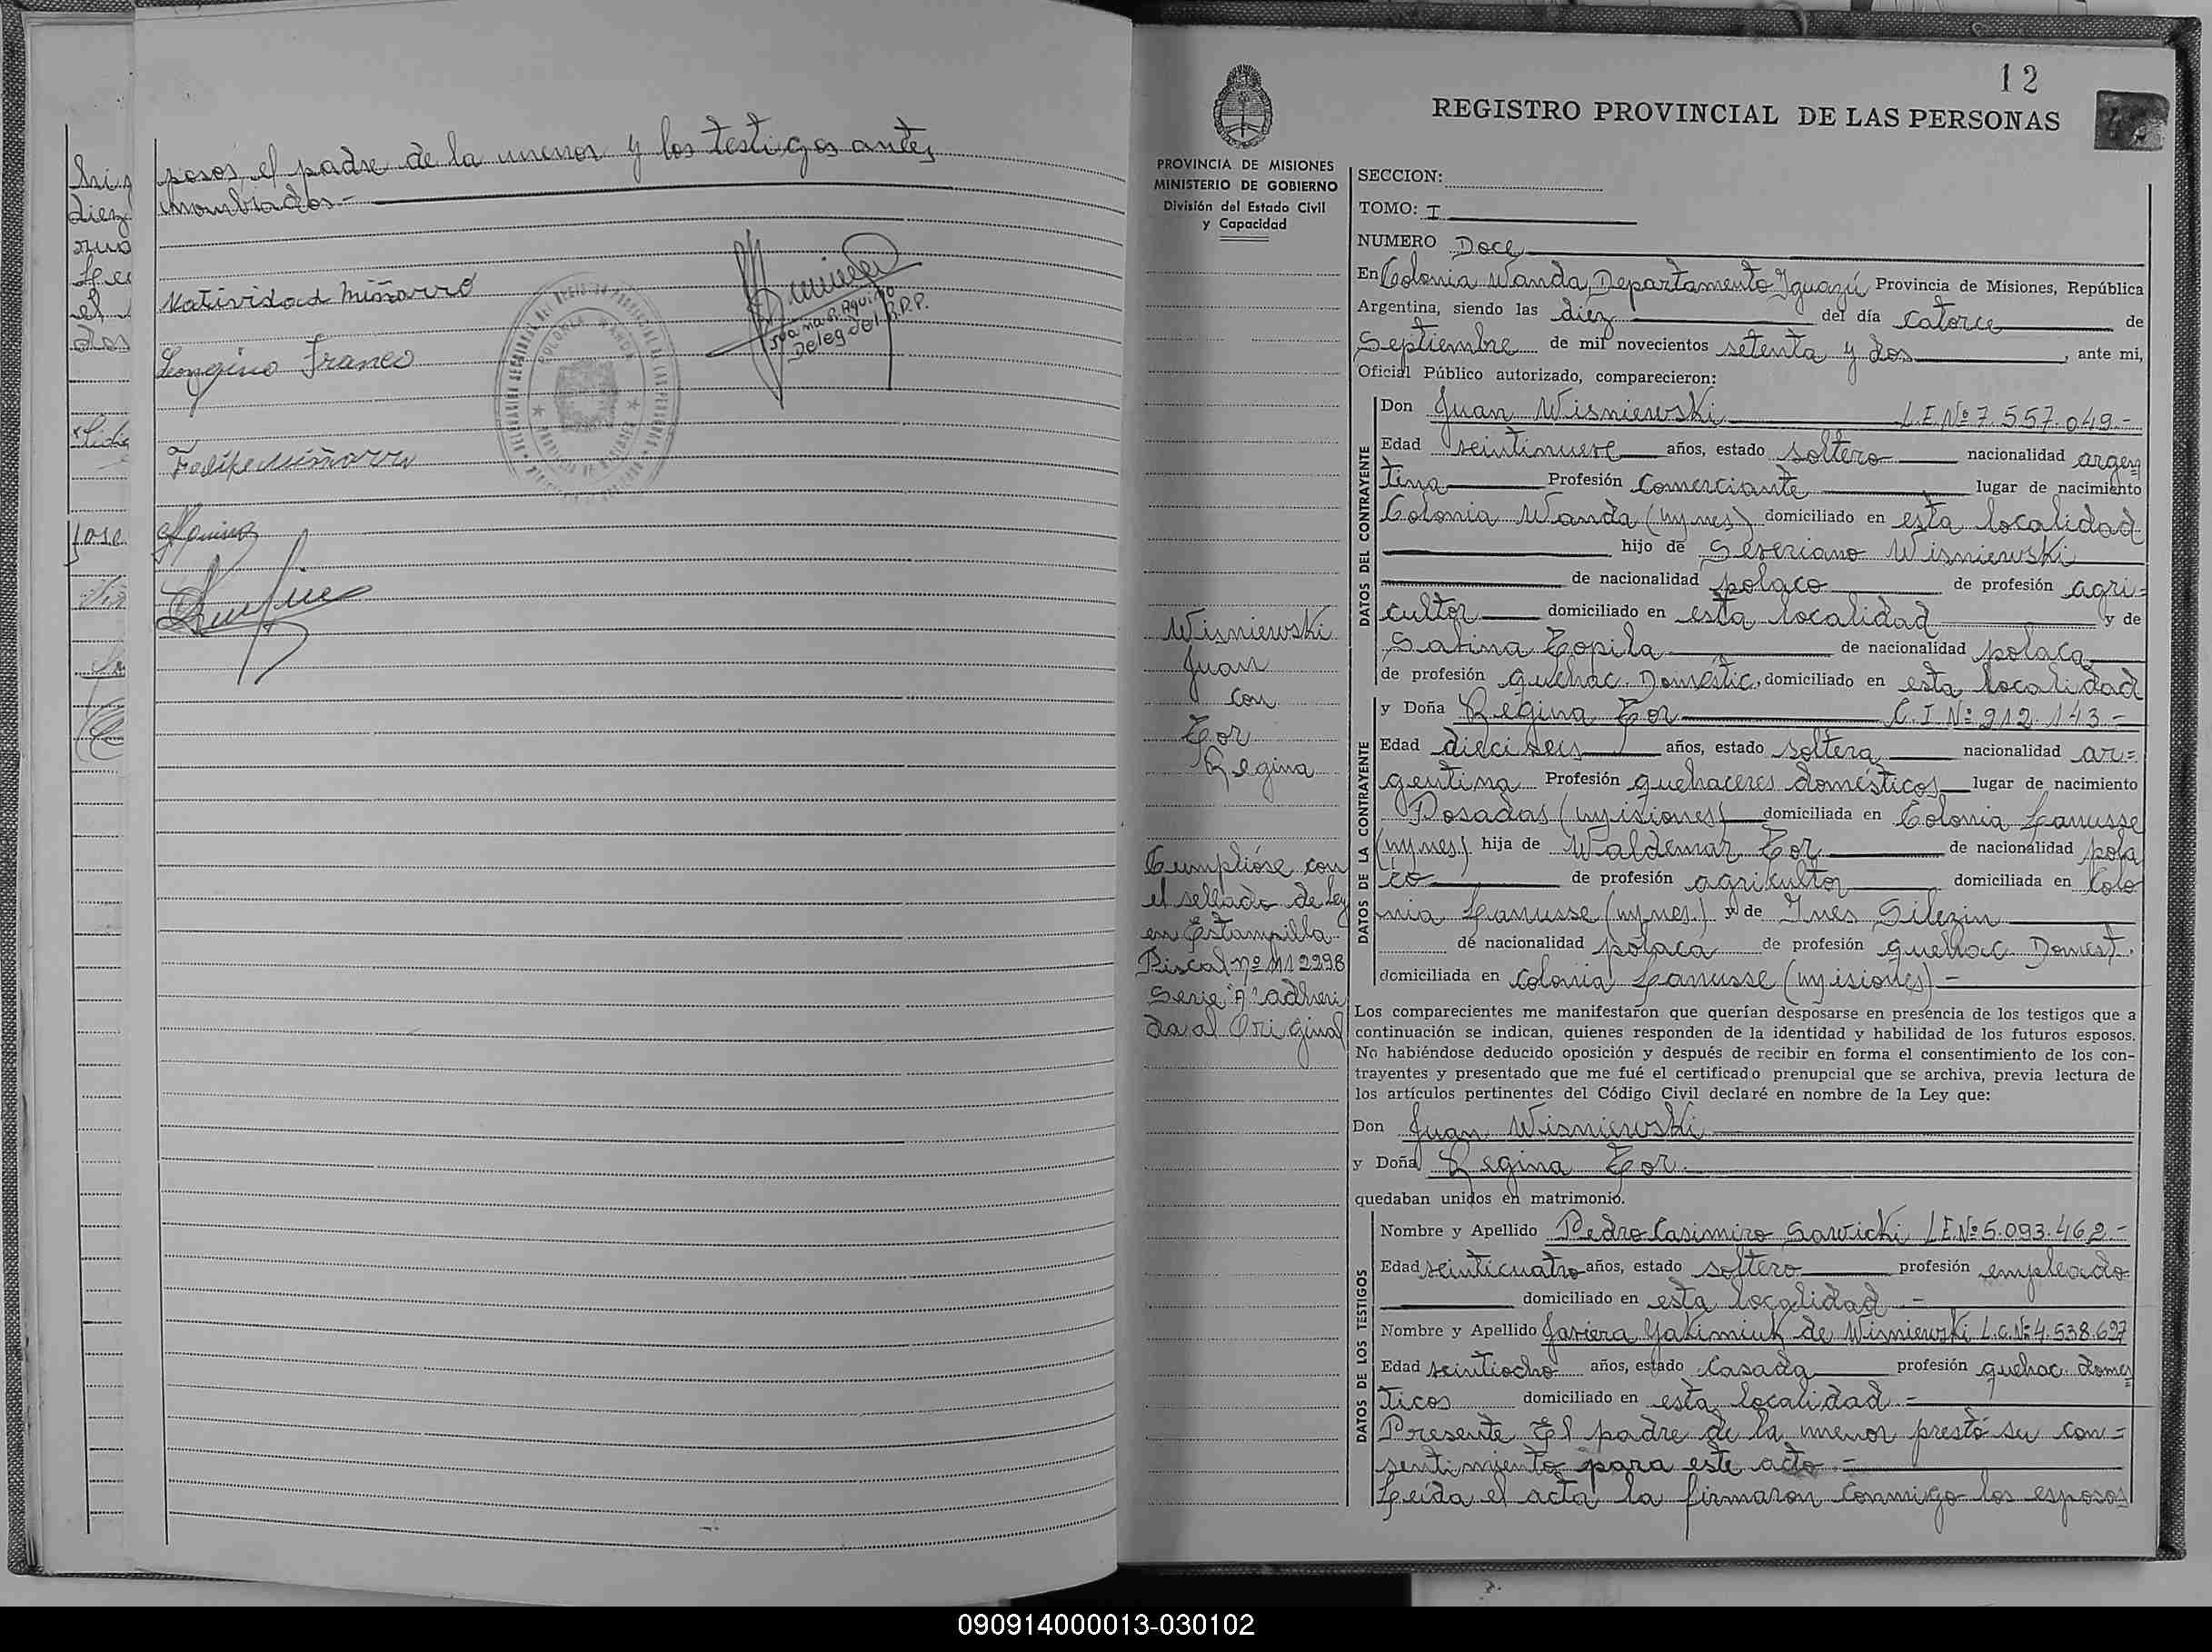 posos, el padre de la menor y los testigos antes
nombrados.-
Natividad Miñarro
Longino Franco
Felipe Miñarro
Delegada R.P.P.
12
REGISTRO PROVINCIAL DE LAS PERSONAS
PROVINCIA DE MISIONES
MINISTERIO DE GOBIERNO
División del Estado Civil
y Capacidad
Wisniewski
Juan
con
Zor
Regina
Cumplióse con
el sellado de Ley
en Estampilla
Fiscal nº 112298
Serie "A" adheri
da al Original
SECCION:
TOMO: I
NUMERO Doce
En Colonia Wanda, Departamento Iguazú Provincia de Misiones, República
Argentina, siendo las diez del día catorce de
Septiembre de mil novecientos setenta y dos, ante mi,
Oficial Público autorizado, comparecieron:
DATOS DEL CONTRAYENTE
Don Juan Wisniewski L.E.Nº 7.557.049.-
Edad veintinueve años, estado soltero nacionalidad argen=
tina Profesión Comerciante lugar de nacimiento
Colonia Wanda (Mnes) domiciliado en esta localidad
hijo de Severiano Wisniewski
de nacionalidad polaco de profesión agri=
cultor domiciliado en esta localidad y de
Sabina Zopila de nacionalidad polaca
de profesión quehac. Doméstic. domiciliado en esta localidad
DATOS DE LA CONTRAYENTE
y Doña Regina Zor C.I.Nº 912.143-
Edad dieciseis años, estado soltera nacionalidad ar=
gentina Profesión quehaceres domésticos lugar de nacimiento
Posadas (Misiones) domiciliada en Colonia Lanusse
(Mnes) hija de Waldemar Zor de nacionalidad pola
co de profesión agricultor domiciliada en Colo
nia Lanusse (Mnes.) y de Ines Silezin
de nacionalidad polaca de profesión quehac Domest.
domiciliada en Colonia Lanusse (Misiones)-
Los comparecientes me manifestaron que querían desposarse en presencia de los testigos que a
continuación se indican, quienes responden de la identidad y habilidad de los futuros esposos.
No habiéndose deducido oposición y después de recibir en forma el consentimiento de los con-
trayentes y presentado que me fué el certificado prenupcial que se archiva, previa lectura de
los artículos pertinentes del Código Civil declaré en nombre de la Ley que:
Don Juan Wisniewski
y Doña Regina Zor.
quedaban unidos en matrimonio.
DATOS DE LOS TESTIGOS
Nombre y Apellido Pedro Casimiro Sawicki L.E.Nº 5.093.462-
Edad veinticuatro años, estado soltero profesión empleado
domiciliado en esta localidad.-
Nombre y Apellido Javiera Yakimiuk de Wisniewski L.C.Nº 4.538.697
Edad veintiocho años, estado Casada profesión quehac. domes
ticos domiciliado en esta localidad.=
Presente El padre de la menor prestó su con=
sentimiento para este acto.-
Leída el acta la firmaron conmigo los esposos
090914000013-030102